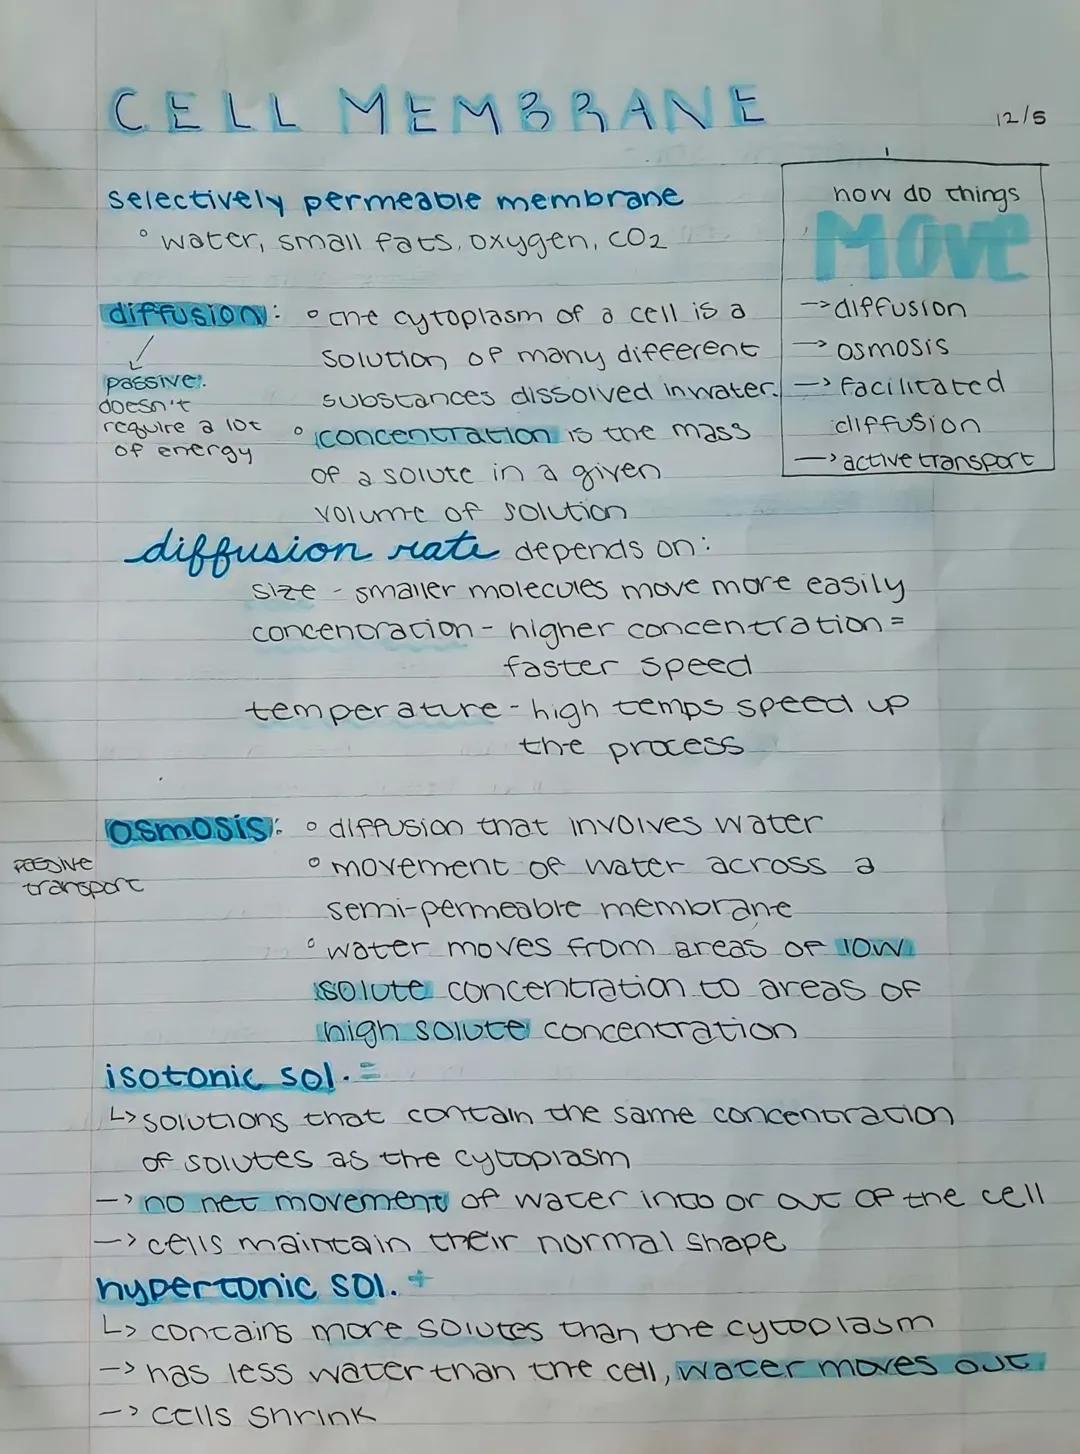 CELL MEMBRANE
12/5
selectively permeable membrane
° water, small fats, oxygen, CO2
how do things
MOVE
→ diffusion
→ osmosis
→ facilitated
diffusion
→ active transport
diffusion: ° the cytoplasm of a cell is a
solution of many different
substances dissolved in water.
° concentration is the mass
of a solute in a given
volume of solution
passive:
doesn't
require a lot
of energy
diffusion rate depends on:
size - smaller molecules move more easily
concentration - higher concentration =
faster speed
temperature - high temps speed up
the process
osmosis: ° diffusion that involves water
passive
transport
° movement of water across a
semi-permeable membrane
° water moves from areas of low
solute concentration to areas of
high solute concentration
isotonic sol. =
↳ solutions that contain the same concentration
of solutes as the cytoplasm
→ no net movement of water into or out of the cell
→ cells maintain their normal shape
hypertonic sol. +
↳ contains more solutes than the cytoplasm
→ has less water than the cell, water moves out
→ cells shrink